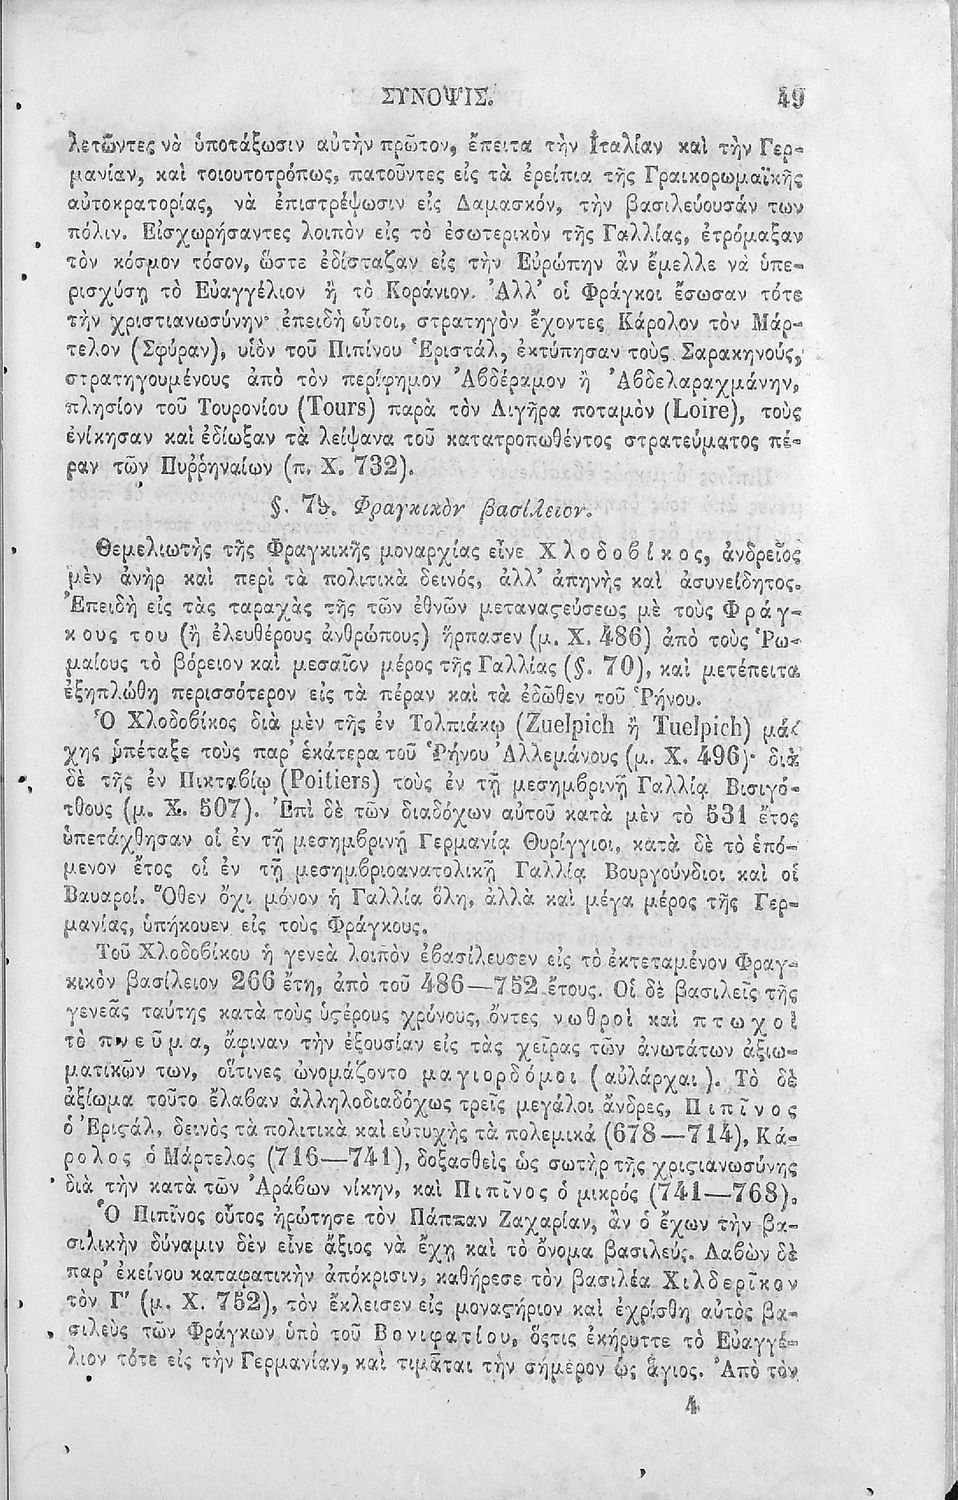 ΣΥΝΟΨΙΣ. 49
λετῶντες νὰ ὑποτάξωσιν αὐτὴν πρῶτον, ἔπειτα τὴν Ἰταλίαν καὶ τὴν Γερ-
μανίαν, καὶ τοιουτοτρόπως, πατοῦντες εἰς τὰ ἐρείπια τῆς Γραικορωμαϊκῆς
αὐτοκρατορίας, νὰ ἐπιστρέψωσιν εἰς Δαμασκόν, τὴν βασιλεύουσάν των
πόλιν. Εἰσχωρήσαντες λοιπὸν εἰς τὸ ἐσωτερικὸν τῆς Γαλλίας, ἐτρόμαξαν
τὸν κόσμον τόσον, ὥστε ἐδίσταζαν εἰς τὴν Εὐρώπην ἂν ἔμελλε νὰ ὑπε-
ρισχύσῃ τὸ Εὐαγγέλιον ἢ τὸ Κοράνιον. Ἀλλ' οἱ Φράγκοι ἔσωσαν τότε
τὴν χριστιανωσύνην· ἐπειδὴ οὗτοι, στρατηγὸν ἔχοντες Κάρολον τὸν Μάρ-
τελον (Σφύραν), υἱὸν τοῦ Πιπίνου Ἑριστάλ, ἐκτύπησαν τοὺς Σαρακηνούς,
στρατηγουμένους ἀπὸ τὸν περίφημον Ἀβδέραμον ἢ Ἀβδελαραχμάνην,
πλησίον τοῦ Τουρονίου (Tours) παρὰ τὸν Λιγῆρα ποταμὸν (Loire), τοὺς
ἐνίκησαν καὶ ἐδίωξαν τὰ λείψανα τοῦ κατατροπωθέντος στρατεύματος πέ-
ραν τῶν Πυῤῥηναίων (π. Χ. 732).
§. 79. Φραγκικὸν βασίλειον.
Θεμελιωτὴς τῆς Φραγκικῆς μοναρχίας εἶνε Χλοδοβίκος, ἀνδρεῖος
μὲν ἀνὴρ καὶ περὶ τὰ πολιτικὰ δεινός, ἀλλ' ἀπηνὴς καὶ ἀσυνείδητος.
Ἐπειδὴ εἰς τὰς ταραχὰς τῆς τῶν ἐθνῶν μεταναςεύσεως μὲ τοὺς Φράγ-
κους του (ἢ ἐλευθέρους ἀνθρώπους) ἥρπασεν (μ. Χ. 486) ἀπὸ τοὺς Ῥω-
μαίους τὸ βόρειον καὶ μεσαῖον μέρος τῆς Γαλλίας (§. 70), καὶ μετέπειτα
ἐξηπλώθη περισσότερον εἰς τὰ πέραν καὶ τὰ ἐδῶθεν τοῦ Ῥήνου.
Ὁ Χλοδοβίκος διὰ μὲν τῆς ἐν Τολπιάκῳ (Zuelpich ἢ Tuelpich) μά-
χης ὑπέταξε τοὺς παρ' ἑκάτερα τοῦ Ῥήνου Ἀλλεμάνους (μ. Χ. 496)· διὰ
δὲ τῆς ἐν Πικταβίῳ (Poitiers) τοὺς ἐν τῇ μεσημβρινῇ Γαλλίᾳ Βισιγό-
τθους (μ. Χ. 507). Ἐπὶ δὲ τῶν διαδόχων αὐτοῦ κατὰ μὲν τὸ 531 ἔτος
ὑπετάχθησαν οἱ ἐν τῇ μεσημβρινῇ Γερμανίᾳ Θυρίγγιοι, κατὰ δὲ τὸ ἑπό-
μενον ἔτος οἱ ἐν τῇ μεσημβριοανατολικῇ Γαλλίᾳ Βουργούνδιοι καὶ οἱ
Βαυαροί. Ὅθεν ὄχι μόνον ἡ Γαλλία ὅλη, ἀλλὰ καὶ μέγα μέρος τῆς Γερ-
μανίας, ὑπήκουεν εἰς τοὺς Φράγκους.
Τοῦ Χλοδοβίκου ἡ γενεὰ λοιπὸν ἐβασίλευσεν εἰς τὸ ἐκτεταμένον Φραγ-
κικὸν βασίλειον 266 ἔτη, ἀπὸ τοῦ 486—752 ἔτους. Οἱ δὲ βασιλεῖς τῆς
γενεᾶς ταύτης κατὰ τοὺς ὑςέρους χρόνους, ὄντες νωθροὶ καὶ πτωχοὶ
τὸ πνεῦμα, ἄφιναν τὴν ἐξουσίαν εἰς τὰς χεῖρας τῶν ἀνωτάτων ἀξιω-
ματικῶν των, οἵτινες ὠνομάζοντο μαγιορδόμοι (αὐλάρχαι). Τὸ δὲ
ἀξίωμα τοῦτο ἔλαβαν ἀλληλοδιαδόχως τρεῖς μεγάλοι ἄνδρες, Πιπῖνος
ὁ Ἑριςάλ, δεινὸς τὰ πολιτικὰ καὶ εὐτυχὴς τὰ πολεμικά (678—714), Κά-
ρολος ὁ Μάρτελος (716—741), δοξασθεὶς ὡς σωτὴρ τῆς χριςιανωσύνης
διὰ τὴν κατὰ τῶν Ἀράβων νίκην, καὶ Πιπῖνος ὁ μικρός (741—768).
Ὁ Πιπῖνος οὗτος ἠρώτησε τὸν Πάππαν Ζαχαρίαν, ἂν ὁ ἔχων τὴν βα-
σιλικὴν δύναμιν δὲν εἶνε ἄξιος νὰ ἔχῃ καὶ τὸ ὄνομα βασιλεύς. Λαβὼν δὲ
παρ' ἐκείνου καταφατικὴν ἀπόκρισιν, καθῄρεσε τὸν βασιλέα Χιλδερῖκον
τὸν Γ' (μ. Χ. 752), τὸν ἔκλεισεν εἰς μοναςήριον καὶ ἐχρίσθη αὐτὸς βα-
σιλεὺς τῶν Φράγκων ὑπὸ τοῦ Βονιφατίου, ὅςτις ἐκήρυττε τὸ Εὐαγγέ-
λιον τότε εἰς τὴν Γερμανίαν, καὶ τιμᾶται τὴν σήμερον ὡς ἅγιος. Ἀπὸ τὸν
4